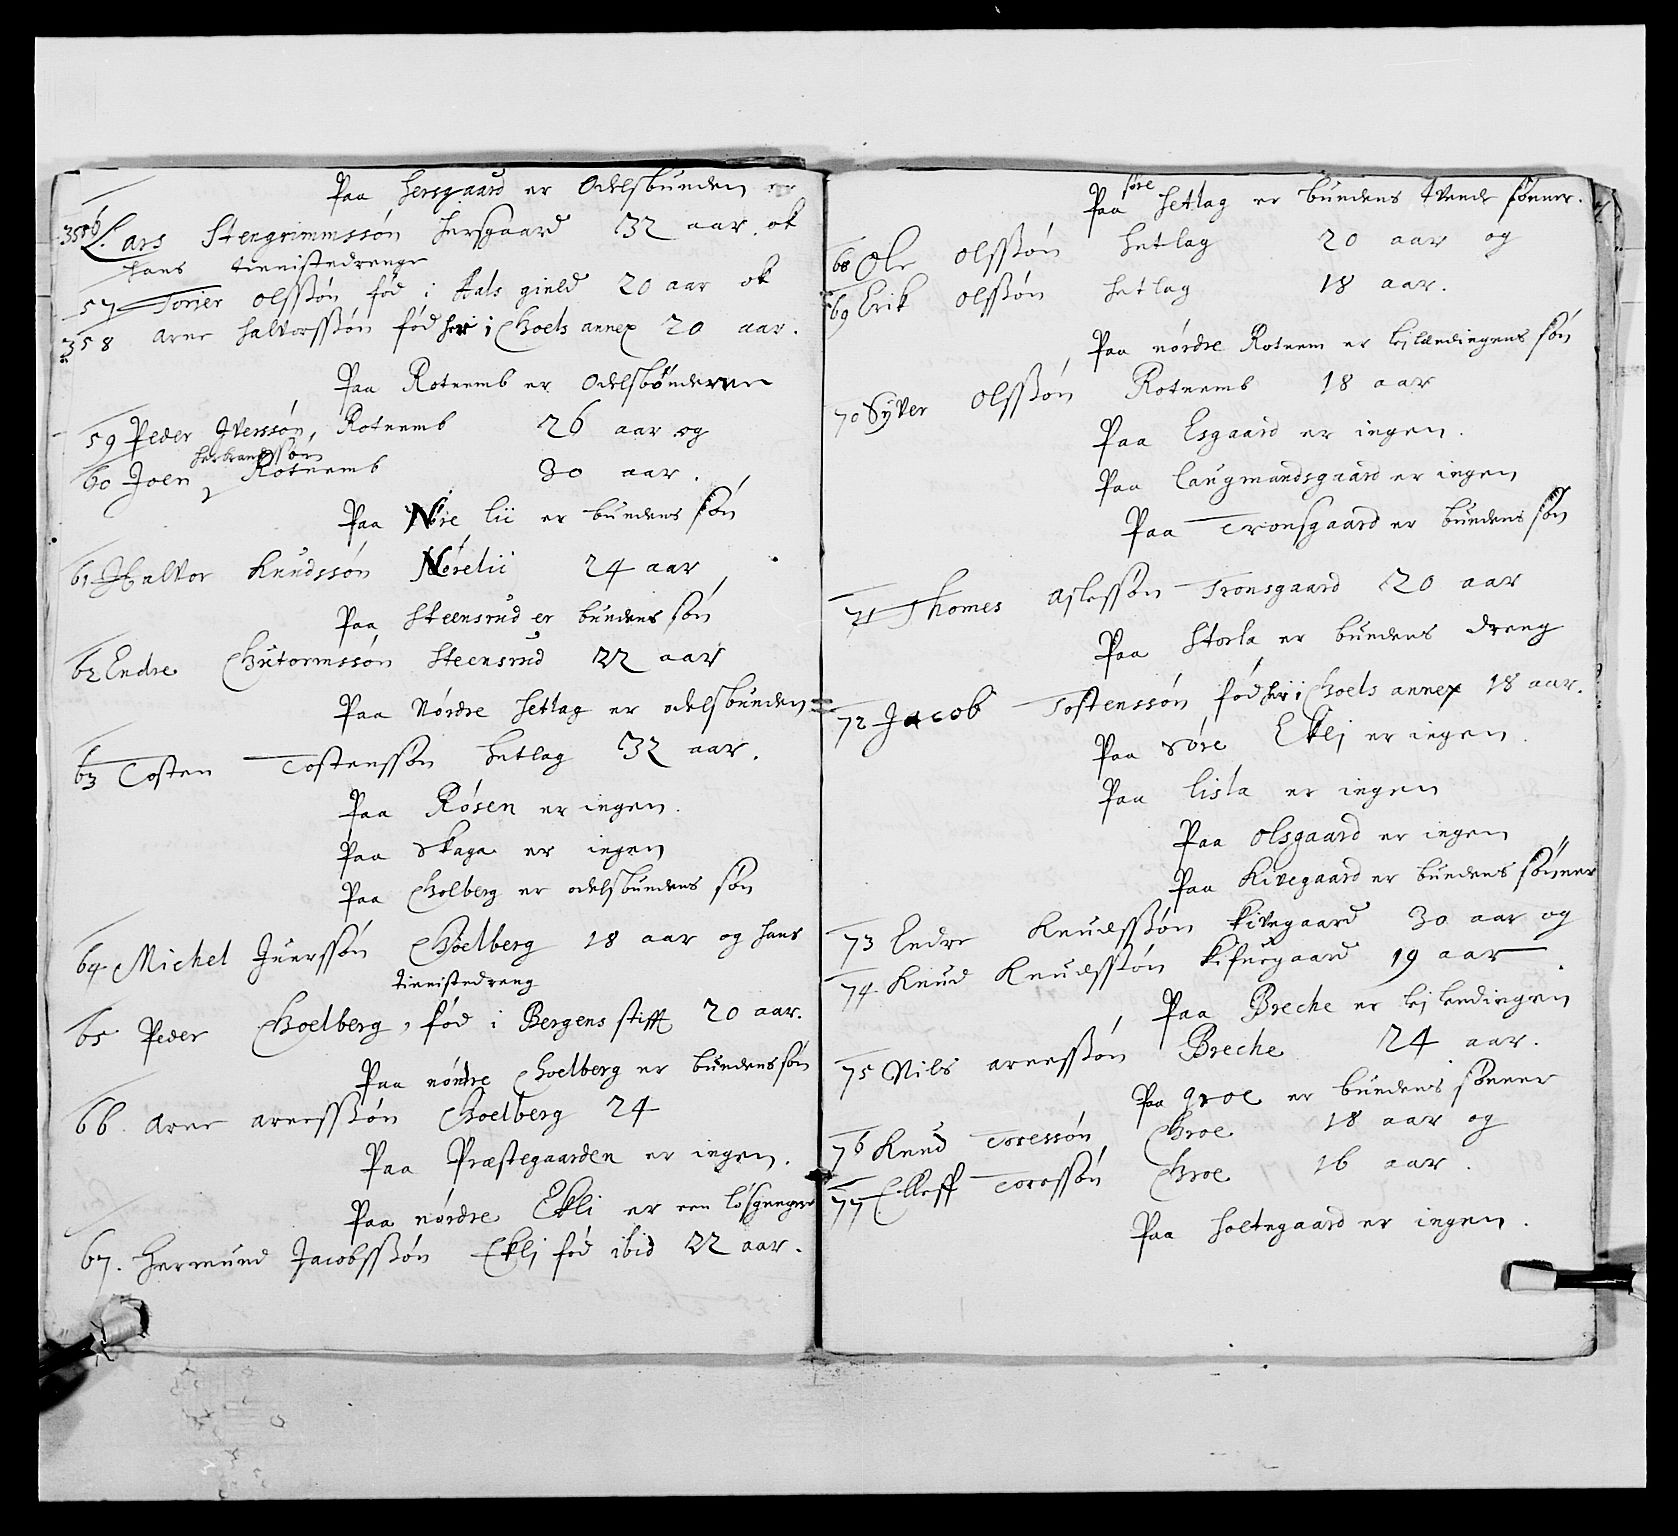 Paa Hersgaard er Odelsbunden
356 Lars Stengrimmssøn Hersgaard 32 aar. ok
hans tienistedrenge
57 Torier Olssøn fød i Aals gield 20 aar ok
358 Arne Halvorssøn fød her i Goels annex 20 aar.
Paa Rotnemb er Odelsbønderne
59 Peder Iverssøn, Rotnemb 26 aar og
Herbrandssøn
60 Joen Rotnemb 30 aar.
Paa Nøre lii er bundens søn
61 Halvor Knudssøn Nørelii 24 aar
Paa Steensrud er bundens søn
62 Endre Gutormssøn Steensrud 22 aar
Paa Nørdre Hetlag er odelsbunden
63 Tosten Tostenssøn Hetlag 32 aar.
Paa Røsen er ingen.
Paa Skaga er ingen
Paa Golberg er odelsbundens søn
64 Michel Juerssøn Goelberg 18 aar og hans
tienistedreng
65 Peder Goelberg, fød i Bergens stifft 20 aar.
Paa nørdre Goelberg er bundens søn
66. Arne arnessøn Goelberg 24
Paa Præstegaarden er ingen.
Paa nørdre Ekli er een løsgenger
67. Hermund Jacobssøn Eklj fød ibid 22 aar.
søre
Paa Hetlag er bundens tvende sønner.
68 Ole Olssøn Hetlag 20 aar og
69 Erik Olssøn Hetlag 18 aar.
Paa nørdre Rotnem er lejlændingens søn
70 Syver Olssøn Rotnemb 18 aar
Paa Esgaard er ingen.
Paa Laugmandsgaard er ingen
Paa Tronsgaard er bundens søn
71 Thomes Aslessøn Tronsgaard 20 aar
Paa Storla er bundens dreng
72 Jacob Tostenssøn fød her i Goels annex 18 aar.
Paa Søre Eklj er ingen.
Paa Lista er ingen
Paa Olsgaard er ingen
Paa Kivegaard er bundens sønner
73 Endre Knudssøn Kivegaard 30 aar og
74. Knud Knudssøn Kifuegaard 19 aar.
Paa Breche er lejlendingen
75 Nils arnessøn Breche 24 aar.
Paa Groe er bundens sønner
76 Knud Toressøn Groe 18 aar og
77 Elleff Toressøn Groe 16 aar.
Paa Holtegaard er ingen.